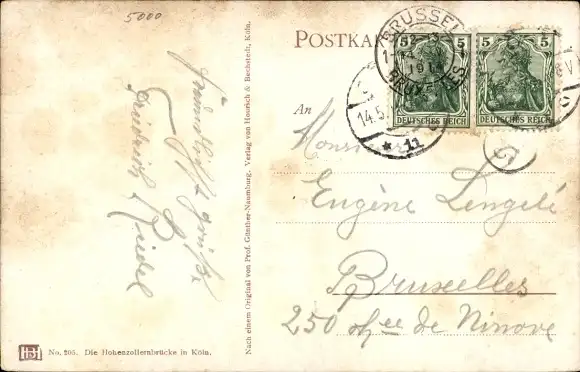 5000
POSTKA
BRUSSEL
5 5
5 5
DEUTSCHES REICH
DEUTSCHES REICH
14.5.
* 11
An
Monsieur
Eugène Lengelé
Bruxelles
250 chée de Ninove
Freundlichste grüße
Friedrich Riedel
Nach einem Original von Prof. Günther-Naumburg. Verlag von Hoursch & Bechstedt, Köln.
No. 205. Die Hohenzollernbrücke in Köln.